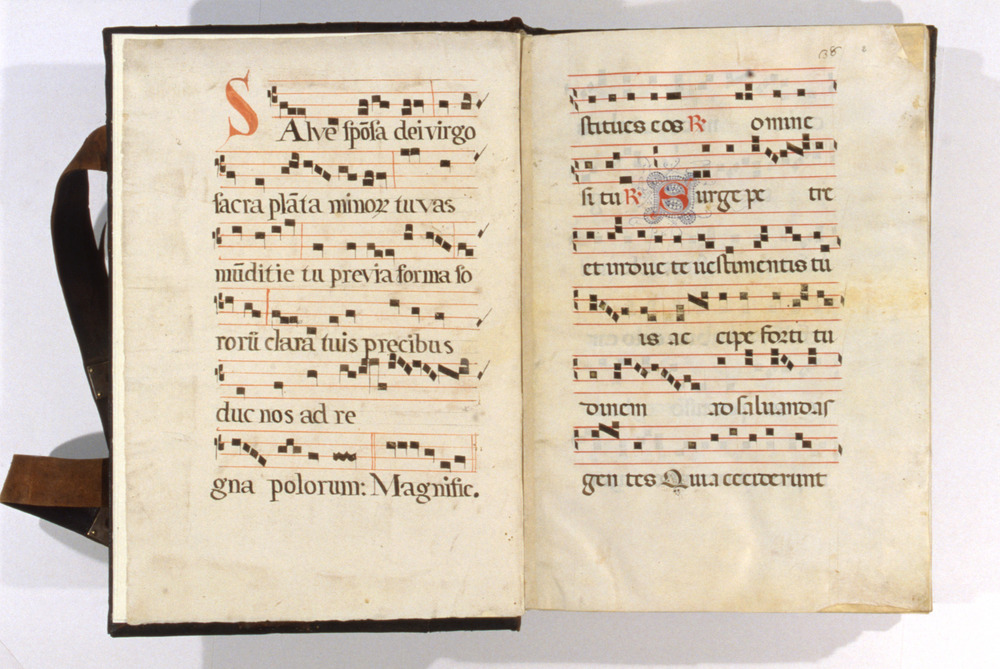 SAlve spōsa dei virgo
sacra plāta minor tu vas
mūditie tu previa forma so
rorū clara tuis precibus
duc nos ad re
gna polorum: Magnific.
stitues eos R. Domine
si tu R. Surge pe tre
et indue te uestimentis tu
is ac cipe forti tu
dinem ad saluandas
gen tes Quia ceciderunt